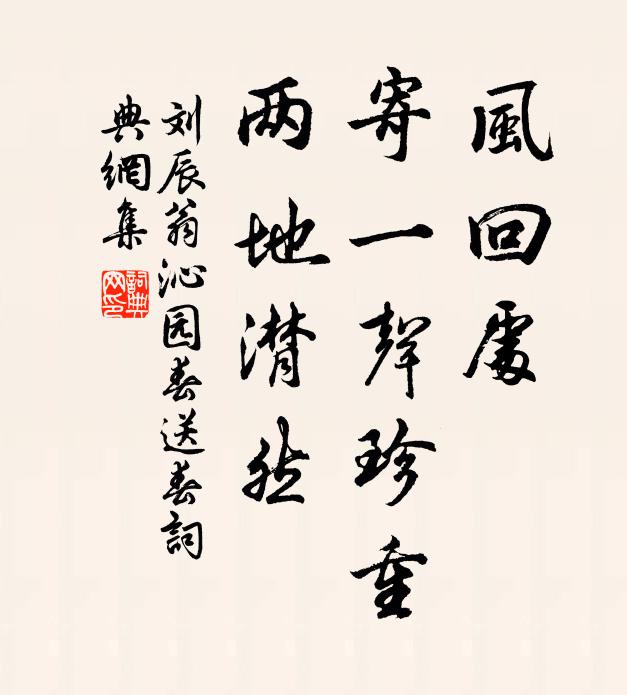 風回處
寄一聲珍重
两地潸然
刘辰翁沁园春送春詞
典網集
詞典網印